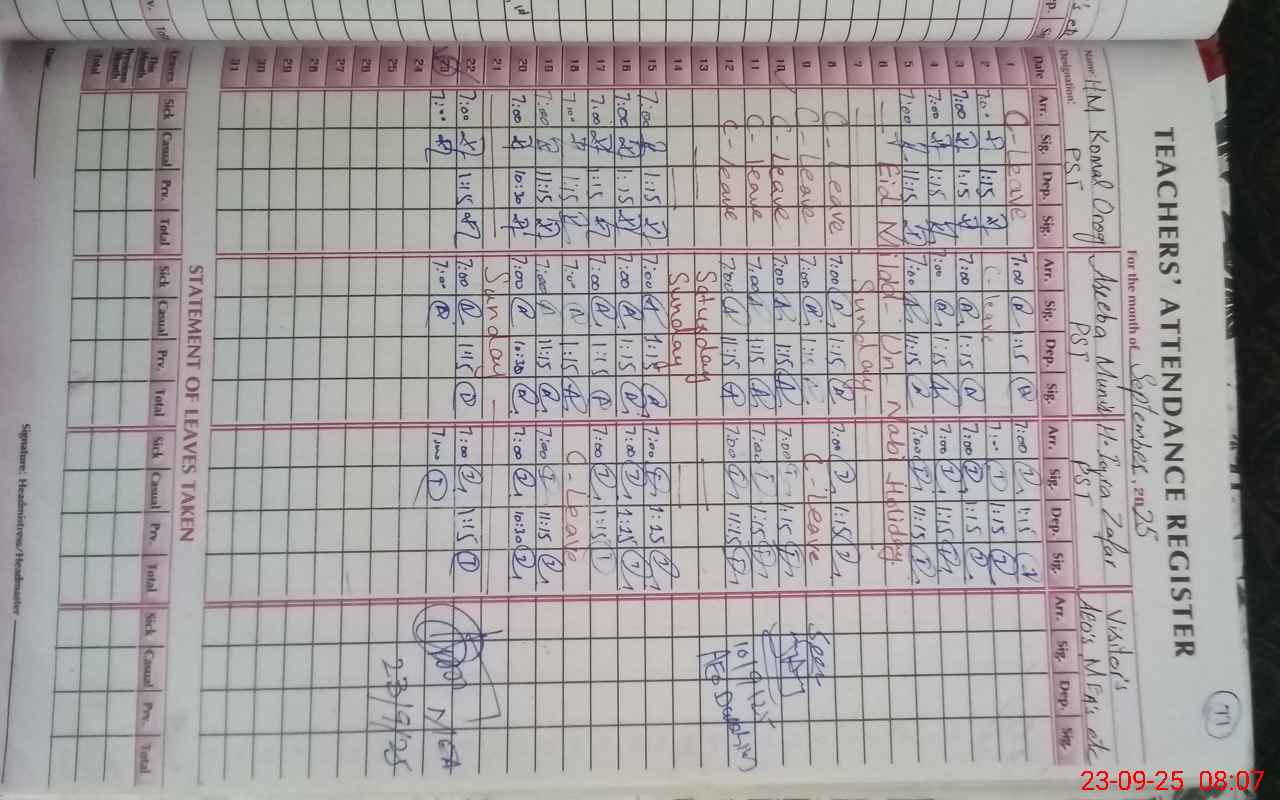 77
TEACHERS' ATTENDANCE REGISTER
For the month of September, 2025
Name: HM Komal Oroog Aseeba Munir H. Iqra Zafar Visitor's
Designation: PST PST PST AEO's, MEA's etc
Date Arr. Sig. Dep. Sig. Arr. Sig. Dep. Sig. Arr. Sig. Dep. Sig. Arr. Sig. Dep. Sig.
1 C-Leave 7:00 1:15 7:00 1:15
2 7:00 1:15 C-leave 7:00 1:15
3 7:00 1:15 7:00 1:15 7:00 1:15
4 7:00 1:15 7:00 1:15 7:00 1:15
5 7:00 11:15 7:00 11:15 7:00 11:15
6 Eid Milad-Un-Nabi Holiday
7 Sunday
8 C-Leave 7:00 1:15 7:00 1:15
9 C-Leave 7:00 1:15 C-Leave Seen
10 C-Leave 7:00 1:15 7:00 1:15
11 C-Leave 7:00 1:15 7:00 1:15 10/9/25
12 C-Leave 7:00 11:15 7:00 11:15 AEO
13 Saturday
14 Sunday
15 7:00 1:15 7:00 1:15 7:00 1:15
16 7:00 1:15 7:00 1:15 7:00 1:15
17 7:00 1:15 7:00 1:15 7:00 1:15
18 7:00 1:15 7:00 1:15 C-Leave
19 7:00 11:15 7:00 11:15 7:00 11:15
20 7:00 10:30 7:00 10:30 7:00 10:30
21 Sunday
22 7:00 1:15 7:00 1:15 7:00 1:15
23 7:00 7:00 7:00 MEA
24
25 23/9/25
26
27
28
29
30
31
STATEMENT OF LEAVES TAKEN
Leaves Sick Casual Prv. Total Sick Casual Prv. Total Sick Casual Prv. Total Sick Casual Prv. Total
This Month
Previous Month
Total
Date:
Signature: Headmistress/Headmaster
23-09-25 08:07